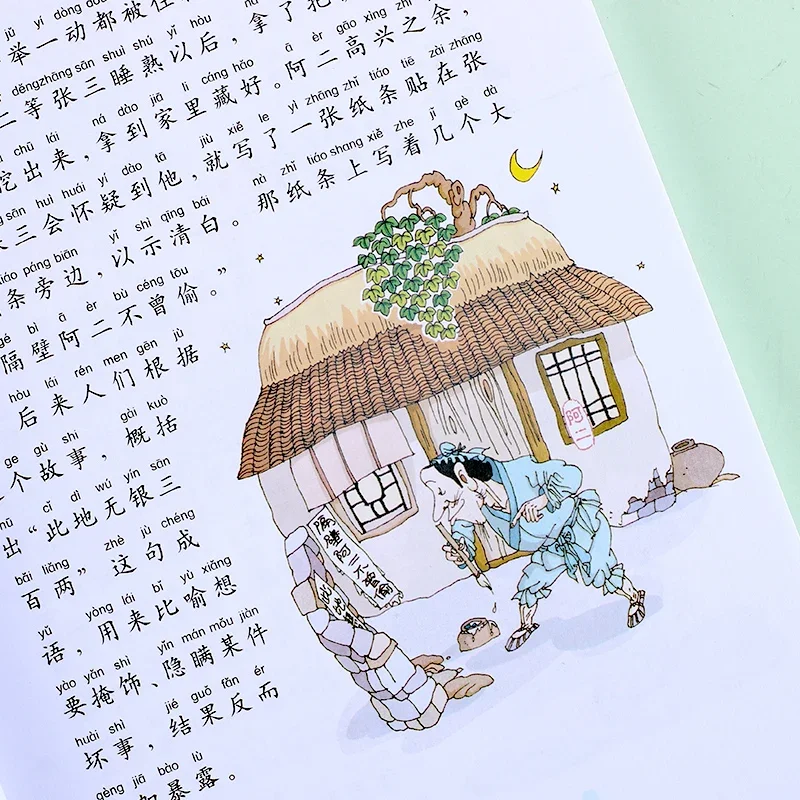 jǔ yí dòng dōu bèi
举一动都被住
děngzhāng sān shuì shú yǐ hòu ná le
二等张三睡熟以后，拿了
chū lái ná dào jiā li cáng hǎo ā èr gāo xìng zhī yú
挖出来，拿到家里藏好。阿二高兴之余，
sān huì huái yí dào tā jiù xiě le yì zhāng zhǐ tiáo tiē zài zhāng
三会怀疑到他，就写了一张纸条贴在张
tiáo páng biān yǐ shì qīng bái nà zhǐ tiáo shang xiě zhe jǐ gè dà
条旁边，以示清白。那纸条上写着几个大
gé bì ā èr bù céng tōu
隔壁阿二不曾偷。”
hòu lái rén men gēn jù
后来人们根据
ge gù shi gài kuò
个故事，概括
cǐ dì wú yín sān
出“此地无银三
bǎi liǎng zhè jù chéng
百两”这句成
yǔ yòng lái bǐ yù xiǎng
语，用来比喻想
yào yǎn shì yǐn mán mǒu jiàn
要掩饰、隐瞒某件
huài shì jié guǒ fǎn ér
坏事，结果反而
gèng jiā bào lù
加暴露。
阿二
隔壁阿二不曾偷